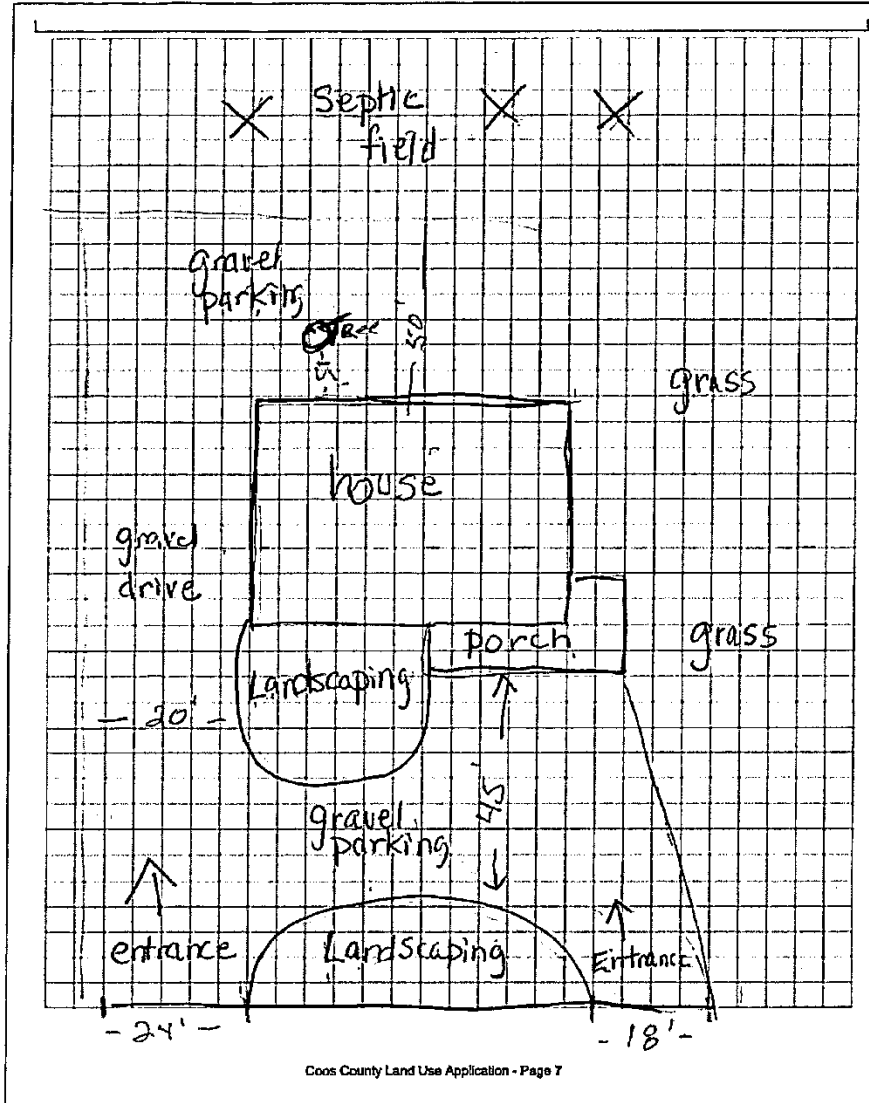 Septic
field
gravel
parking
Tree
50'
grass
house
gravel
drive
porch
grass
Landscaping
- 20' -
45'
gravel
parking
entrance
Landscaping
Entrance
- 24' -
- 18' -
Coos County Land Use Application - Page 7